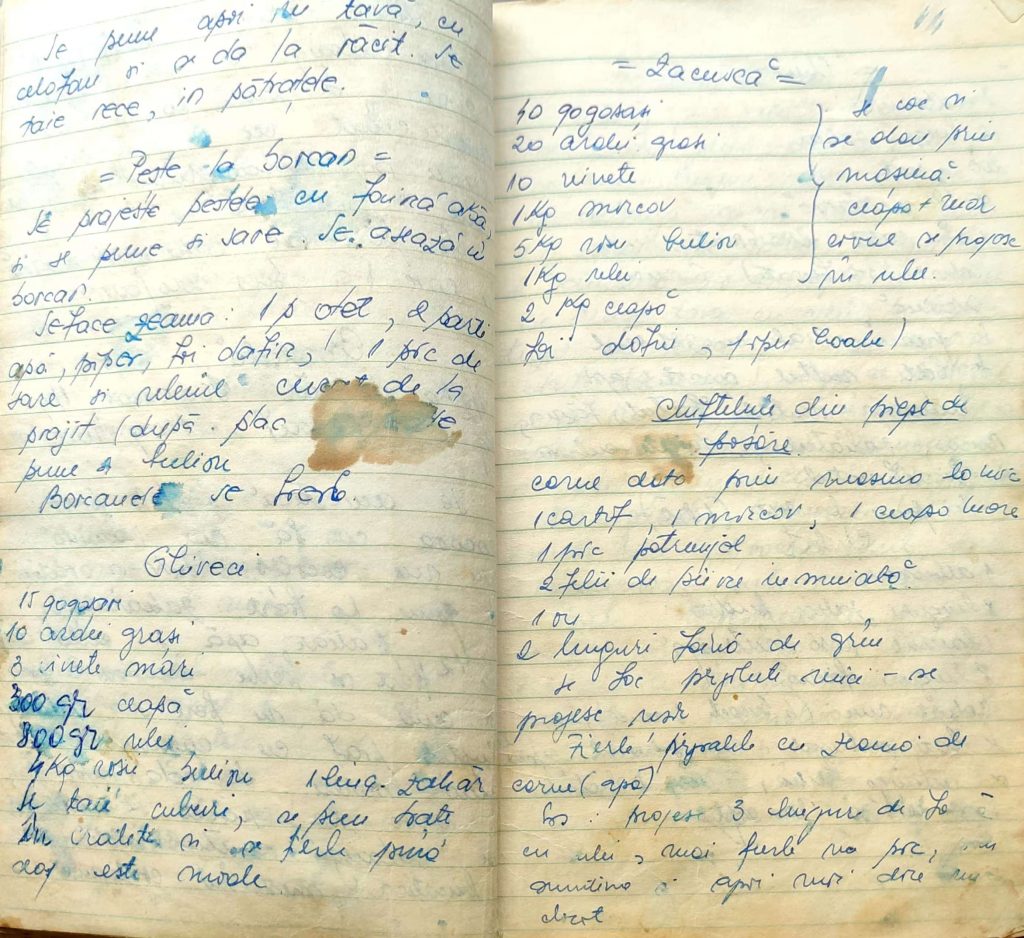 Se pune apoi în tavă, cu
celofan si se da la răcit. Se
taie rece, in pătrățele.
= Pește la borcan =
Se prajește pestele cu făină albă,
si se pune si sare. Se așază în
borcan.
Se face zeama: 1 p otet, 2 parti
apă, piper, foi dafin, 1 pic de
sare si uleiul de la
prajit (după plac
pune si bulion
Borcanele se fierb.
Ghiveci
15 gogosari
10 ardei grasi
3 vinete mari
300 gr ceapă
800 gr ulei
4 Kg rosii bulion 1 ling. zahăr
Se taie cuburi, se pun toate
în cratită si se fierb pînă
moale
= Zacuscă =
40 gogosari
20 ardei grasi
10 vinete
1 Kg morcov
5 Kg rosii bulion
1 Kg ulei
2 Kg ceapă
foi dafin, piper boabe
se coc si
se dau prin
masină
ceapa + mor
covul se prajesc
în ulei.
Chiftelute din piept de
pasăre.
carne data prin masina
1 cartof, 1 morcov, 1 ceapa mare
1 pic patrunjel
2 felii de pîine inmuiată
1 ou
2 linguri făină de grîu
se fac mici - se
prajesc usor
Fierb cu zeamă de
carne (apă)
Sos: prajesc 3 linguri de fă
cu ulei, mai fierb un pic,
smîntîna si apoi